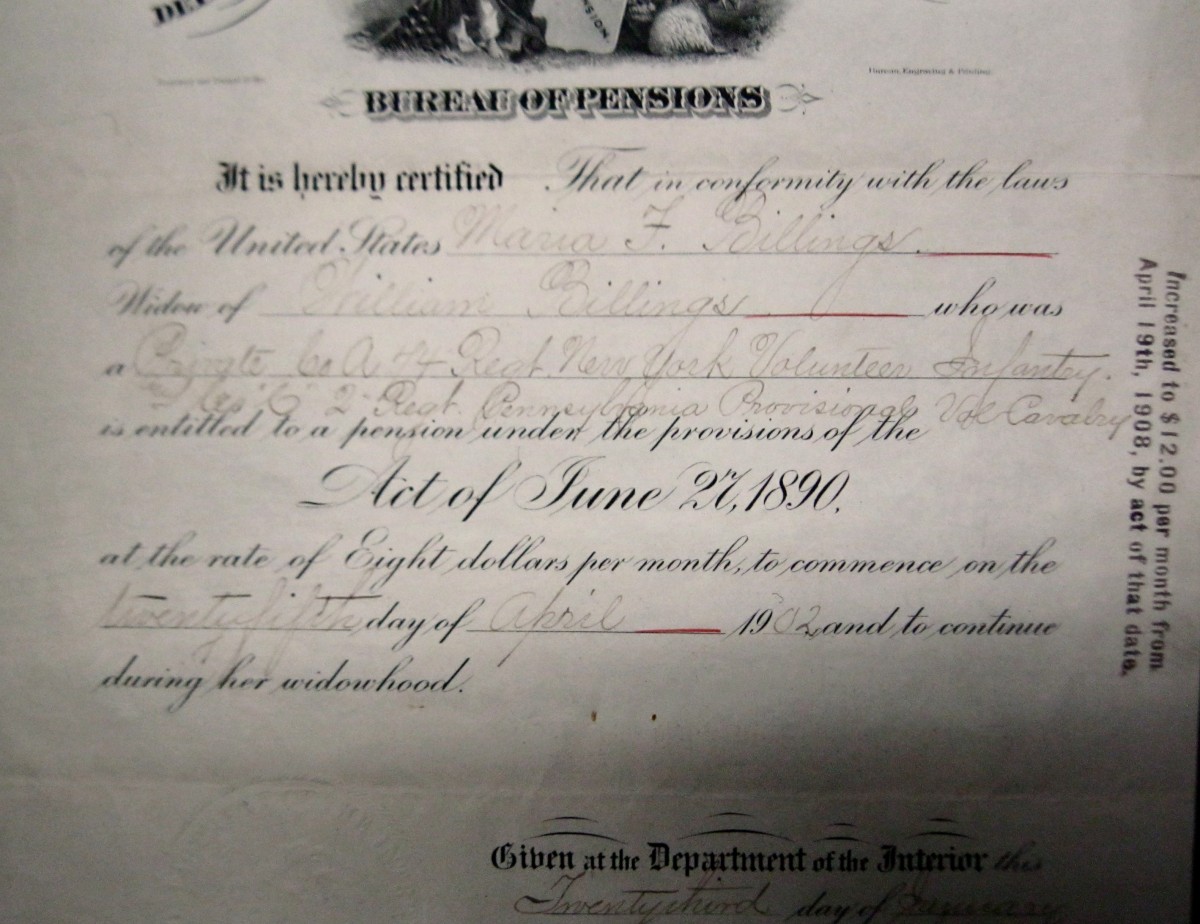 DE
PENSION
Bureau, Engraving & Printing.
BUREAU OF PENSIONS
It is hereby certified That in conformity with the laws
of the United States Maria F. Billings
Widow of William Billings who was
a Private Co A 4 Regt. New York Volunteer Infantry.
Co C 2 Regt. Pennsylvania Provisional Vol Cavalry
is entitled to a pension under the provisions of the
Act of June 27, 1890,
at the rate of Eight dollars per month, to commence on the
twenty fifth day of April 1902 and to continue
during her widowhood.
Given at the Department of the Interior this
Twenty third day of January
Increased to $12.00 per month from
April 19th, 1908, by act of that date.